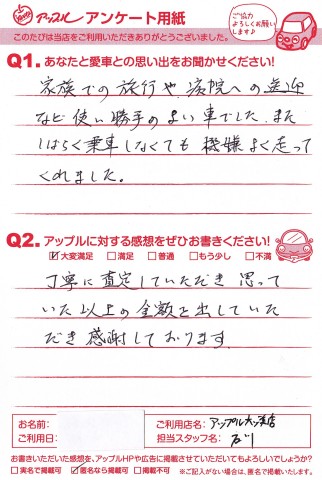 アップル アンケート用紙
ご協力
よろしくお願い
します♪
このたびは当店をご利用いただきありがとうございました。
Q1. あなたと愛車との思い出をお聞かせください!
家族での旅行や、病院への送迎
など使い勝手のよい車でした。また
しばらく乗車しなくても機嫌よく走って
くれました。
Q2. アップルに対する感想をぜひお書きください!
☑大変満足 □満足 □普通 □もう少し □不満
丁寧に査定していただき思って
いた以上の金額を出していた
だき感謝しております。
お名前:
ご利用日:
ご利用店名: アップル大津店
担当スタッフ名: 石川
お書きいただいた感想を、アップルHPや広告に掲載させていただいてもよろしいでしょうか?
□実名で掲載可 ☑匿名なら掲載可 □掲載不可 ※ご記入がない場合は、匿名で掲載いたします。